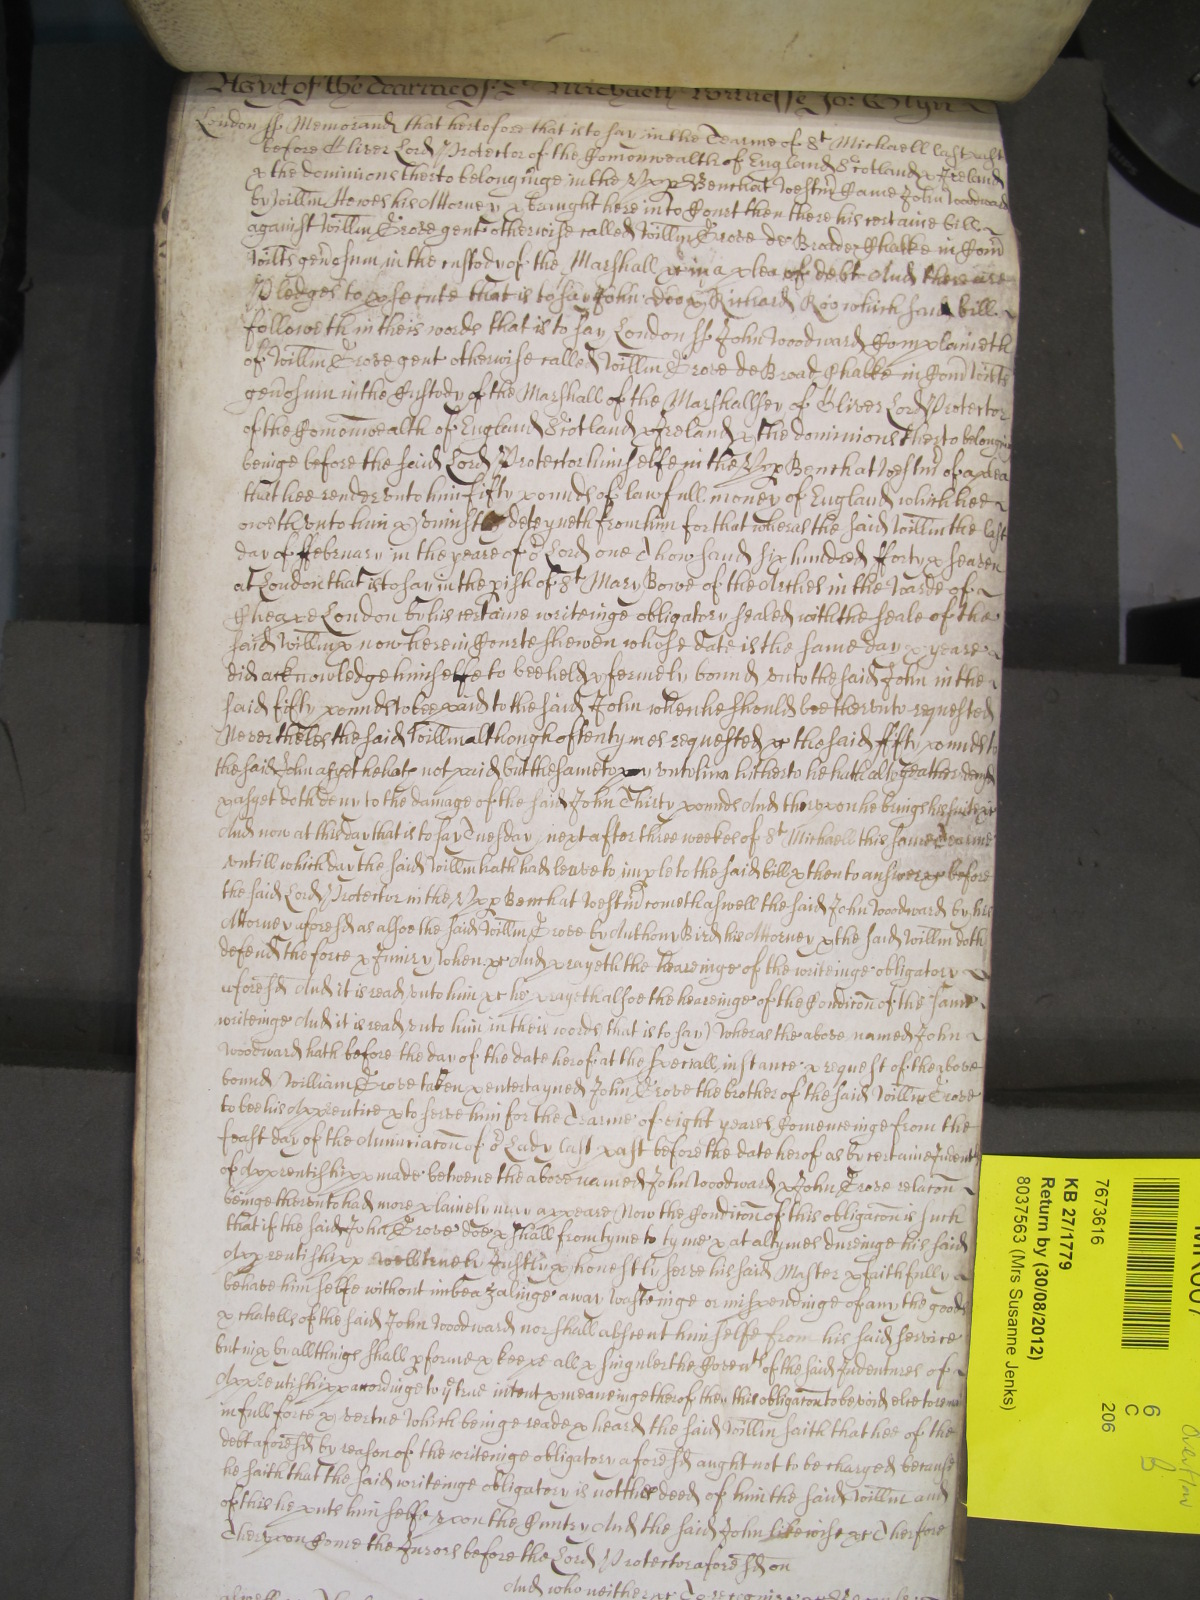 As yet of the Tearme of St Michaell Witnesse Jo: Glyn
London ss Memorand that hertofore that is to say in the Tearme of St Michaell last past
before Oliver Lord Protector of the Comonwealth of England Scotland & Ireland
& the dominions therto belonginge in the Upp Bench at Westmr Came John Woodward
by Willm Howes his Attorney & brought here into Court then there his certaine bill
against Willm Grove gent otherwise called Willm Grove de Broade Chalke in Com
Wilts genosum, in the custody of the Marshall &c in a plea of debt And there are
Pledges to psecute that is to say John Doo & Richard Roo which said bill
followeth in theis words that is to say London ss John Woodward Complaineth
of Willm Grove gent otherwise called Willm Grove de Broad Chalke in Com Wilts
genosum in the Custody of the Marshall of the Marshallsey of Oliver Lord Protector
of the Comonwealth of England Scotland & Ireland & the dominions therto belonging
beinge before the said Lord Protector himselfe in the Upp Bench at Westmr of a plea
that hee render unto him fifty pounds of lawfull money of England which hee
oweth unto him & uniustly deteyneth from him for that wheras the said Willm the last
day of February in the yeare of or Lord one Thowsand six hundred fforty & seaven
at London that is to say in the pish of St Mary Bowe of the Arches in the Warde of
Cheape London by his certaine writeinge obligatory sealed with the seale of the
said Willm & now here in Courte shewen whose date is the same day & yeare
did acknowledge himselfe to bee held & firmely bound unto the said John in the
said fifty pounds to bee paid to the said John when he should bee therunto requested
Neverthelesse the said Willm although oftentymes requested &c the said fifty pounds to
the said John as yet he hath not paid but the same to pay unto him hitherto he hath altogeather denyd
& as yet doth deny to the damage of the said John Thirty pounds And therupon he brings his suite &c
And now at this day that is to say Tuesday next after three weekes of St Michaell this same Tearme
untill which day the said Willm hath had leave to imple to the said bill & then to answere &c before
the said Lord Protector in the Upp Bench at Westmr cometh aswell the said John Woodward by his
Attorney aforesd as alsoe the said Willm Grove by Anthony Bird his Attorney & the said Willm doth
defend the force & Iniury when &c And prayeth the heareinge of the writeinge obligatory
aforesd And it is read unto him &c he prayeth alsoe the heareinge of the Condicon of the same
writeinge And it is read unto him in theis words that is to say Wheras the above named John
Woodward hath before the day of the date herof at the speciall instance & request of the above
bound William Grove taken & entertayned John Grove the brother of the said Willm Grove
to bee his Apprentice & to serve him for the Tearme of eight yeares Comenceinge from the
feast day of the Annunciacon of or Lady last past before the date herof as by certaine Indents
of Apprentishipp made betwene the above named John Woodward & John Grove relacon
beinge therunto had more plainely may appeare Now the Condicon of this obligacon is such
that if the said John Grove doe & shall from tyme to tyme & at all tymes dureinge his said
Apprentishipp well truely Iustly & honestly serve his said Master & faithfully
behave him selfe without imbeazalinge away wasteinge or mispendinge of any the goods
& chatells of the said John Woodward nor shall absent him selfe from his said service
but in & by all things shall pforme & keepe all & singuler the Coven'ts of the said Indentures of
Apprentishipp accordinge to ye true intent & meaneinge therof then this obligacon to be void else to remaine
in full force & vertue Which beinge reade & heard the said Willm saith that hee of the
debt aforesd by reason of the writeinge obligatory aforesd aught not to be charged because
he saith that the said writeinge obligatory is not the deed of him the said Willm and
of this he puts him selfe upon the Cuntry And the said John likewise &c Therfore
Therupon Come the Iurors before the Lord Protector aforesd on
And who neither &c To recognize
7673616
KB 27/1779
Return by (30/08/2012)
8037563 (Mrs Susanne Jenks)
206
6
C
B